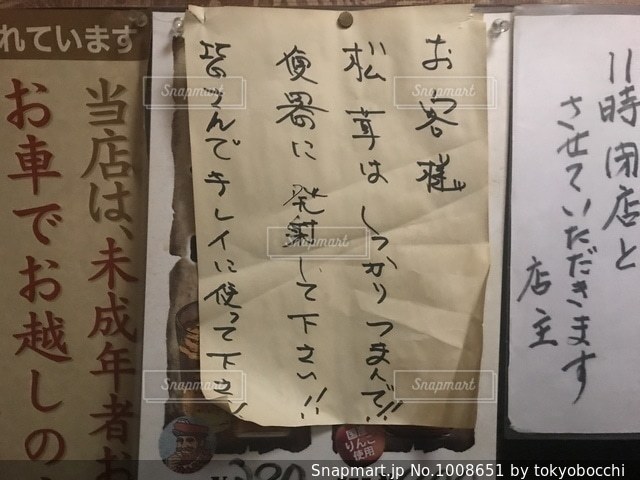 11時閉店と
させていただきます
店主
お客様
松茸はしっかりつまんで!!
便器に発射して下さい!!
皆さんでキレイに使って下さい!
れています
当店は、未成年者お
お車でお越しの
りんご
使用
Snapmart
Snapmart
Snapmart
Snapmart
Snapmart
Snapmart.jp No.1008651 by tokyobocchi